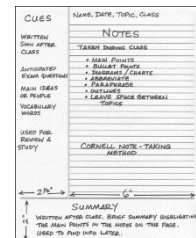 CUES
NAME, DATE, TOPIC, CLASS
NOTES
WRITTEN
SOON AFTER
CLASS
ANTICIPATED
EXAM QUESTIONS
MAIN IDEAS
OR PEOPLE
VOCABULARY
WORDS
USED FOR
REVIEW &
STUDY
TAKEN DURING CLASS
• MAIN POINTS
• BULLET POINTS
• DIAGRAMS/CHARTS
• ABBREVIATE
• PARAPHRASE
• OUTLINES
• LEAVE SPACE BETWEEN
TOPICS
CORNELL NOTE-TAKING
METHOD
2½"
6"
SUMMARY
2"
WRITTEN AFTER CLASS. BRIEF SUMMARY HIGHLIGHTING
THE MAIN POINTS IN THE NOTES ON THE PAGE.
USED TO FIND INFO LATER.